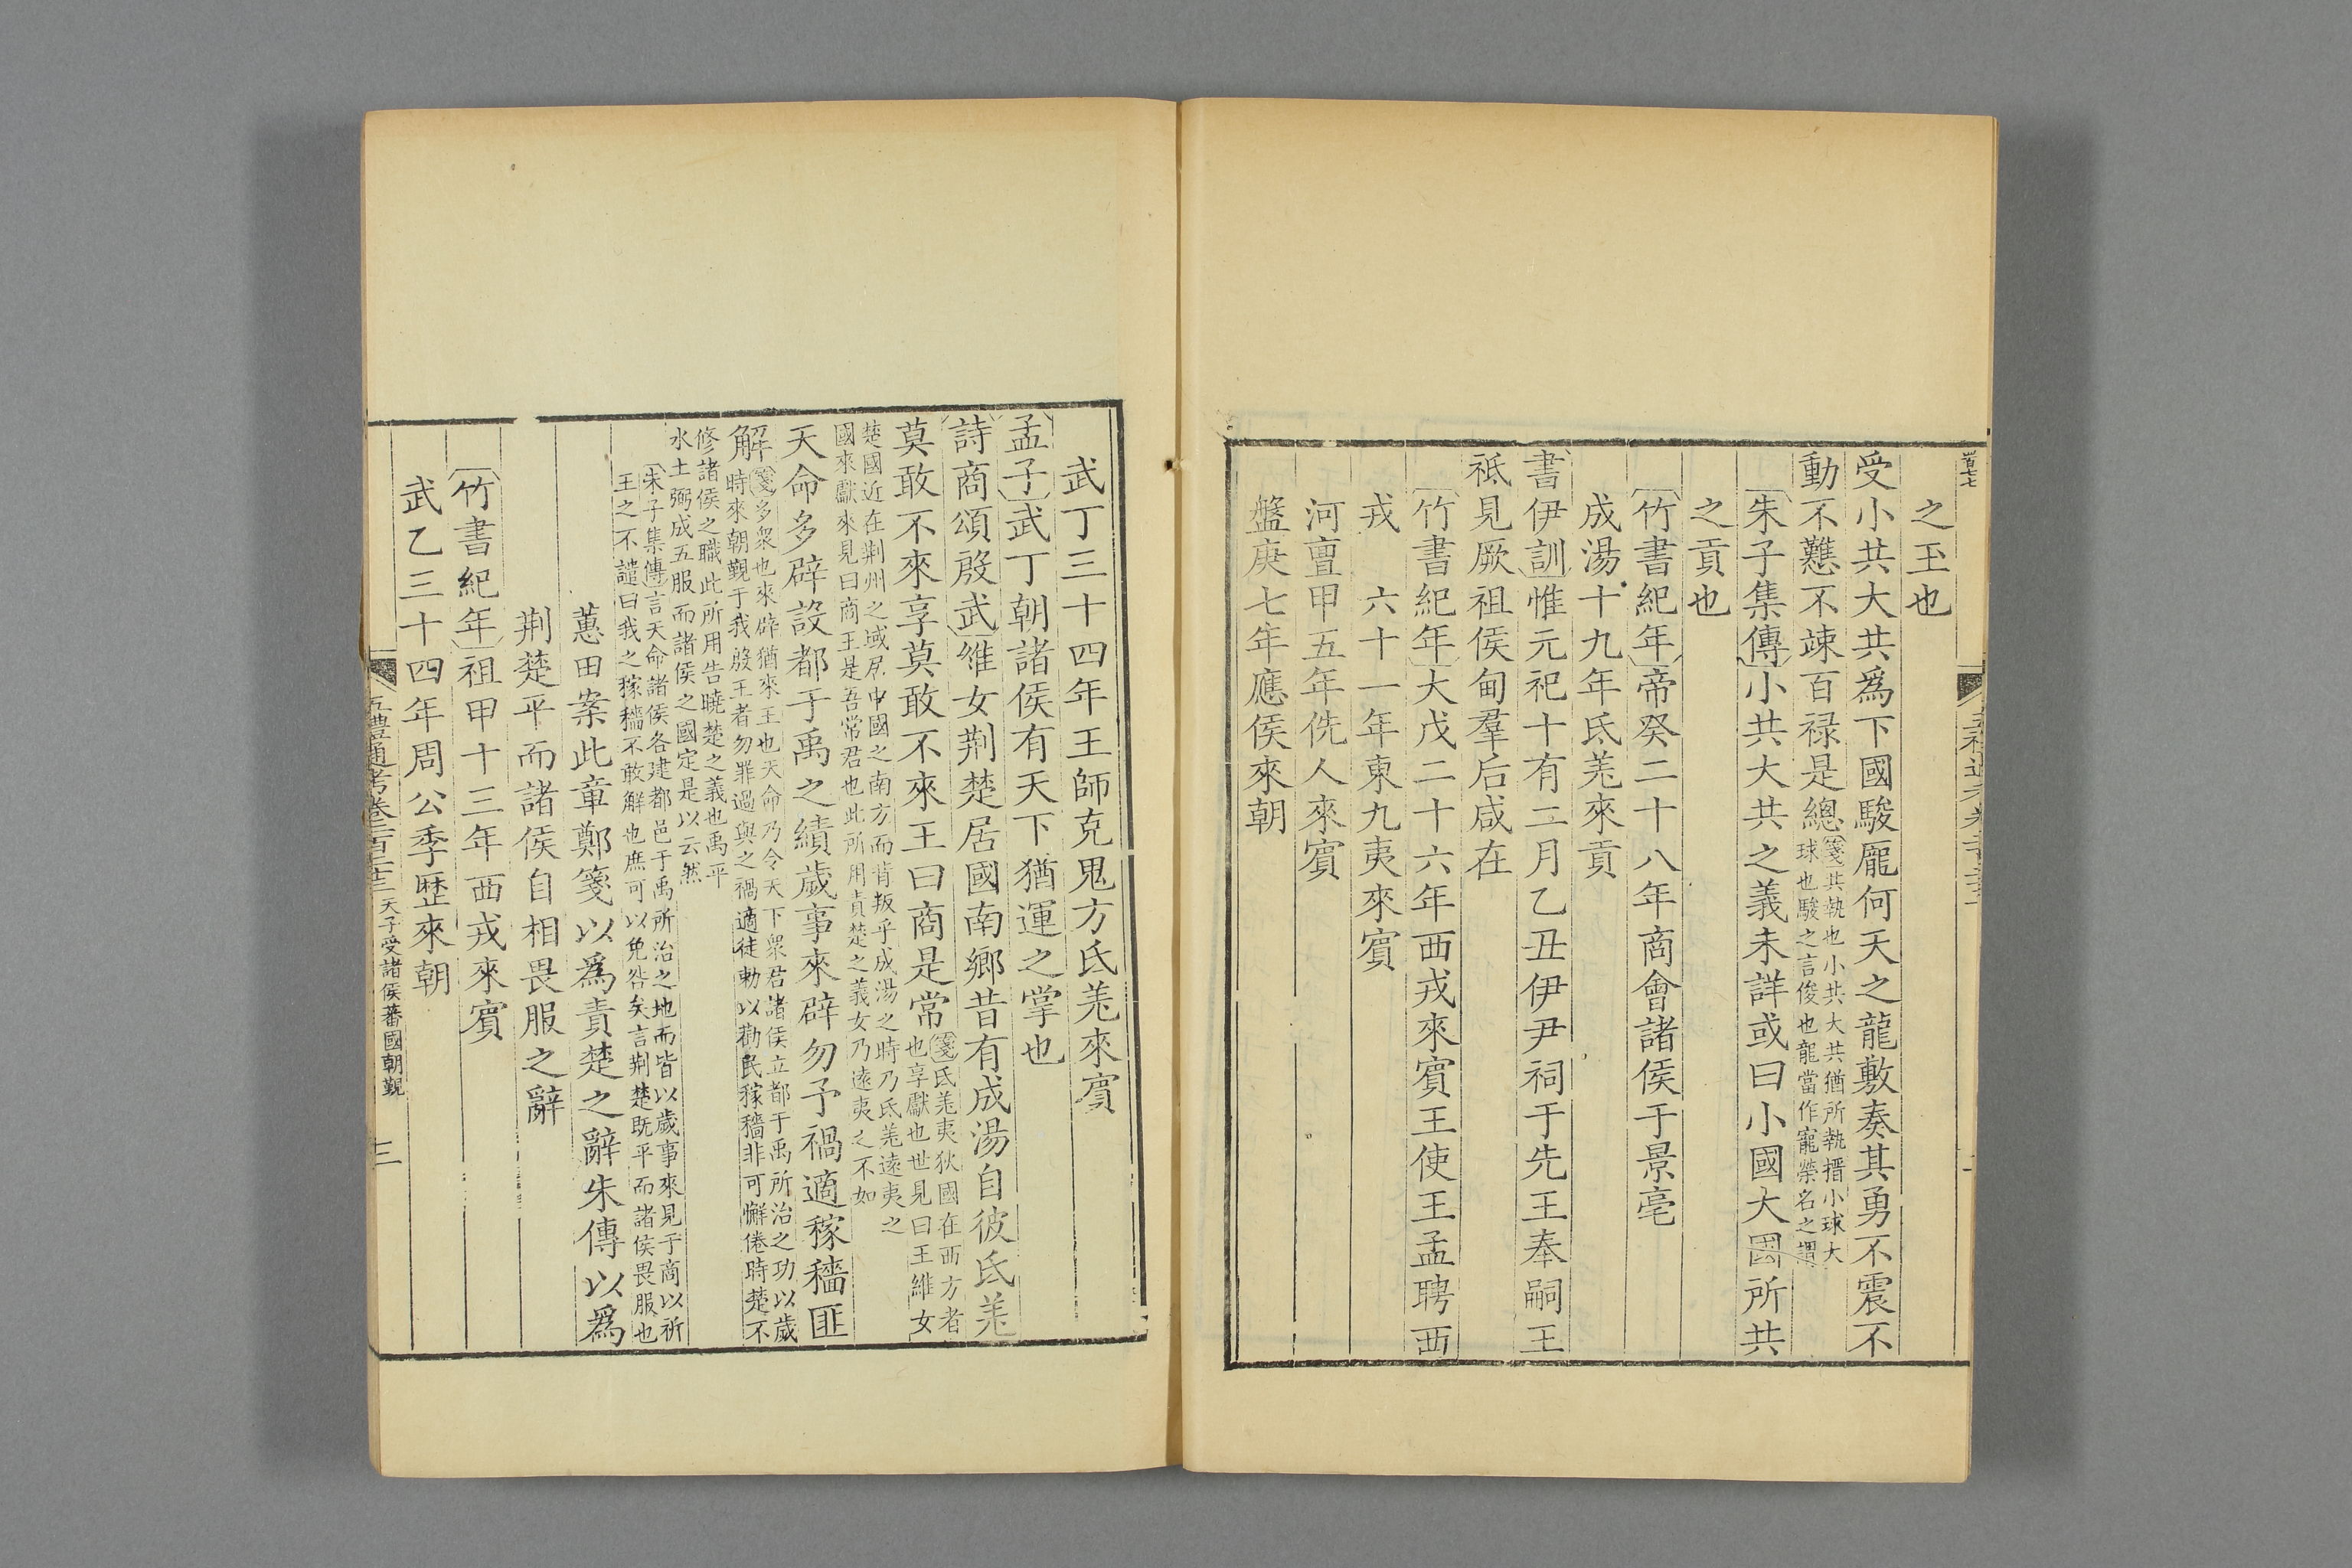 之玉也
受小共大共爲下國駿厖何天之龍敷奏其勇不震不
動不戁不竦百禄是總箋共執也小共大共猶所執搢小球大
球也駿之言俊也龍當作寵榮名之謂
朱子集傳小共大共之義未詳或曰小國大國所共
之貢也
竹書紀年帝癸二十八年商會諸侯于景亳
成湯十九年氐羌來貢
書伊訓惟元祀十有二月乙丑伊尹祠于先王奉嗣王
祗見厥祖侯甸羣后咸在
竹書紀年大戊二十六年西戎來賓王使王孟聘西
戎 六十一年東九夷來賓
河亶甲五年侁人來賓
盤庚七年應侯來朝
武丁三十四年王師克鬼方氐羌來賓
孟子武丁朝諸侯有天下猶運之掌也
詩商頌殷武維女荆楚居國南鄉昔有成湯自彼氐羌
莫敢不來享莫敢不來王曰商是常箋氐羌夷狄國在西方者
也享獻也世見曰王維女
楚國近在荆州之域居中國之南方而背叛乎成湯之時乃氐羌遠夷之
國來獻來見曰商王是吾常君也此所用責楚之義女乃遠夷之不如
天命多辟設都于禹之績歲事來辟勿予禍適稼穡匪
解箋多衆也來辟猶來王也天命乃令天下衆君諸侯立都于禹所治之功以歲
時來朝覲于我殷王者勿罪過與之禍適徒勅以勸民稼穡非可懈倦時楚不
修諸侯之職此所用告曉楚之義也禹平
水土弼成五服而諸侯之國定是以云然
朱子集傳言天命諸侯各建都邑于禹所治之地而皆以歲事來見于商以祈
王之不譴曰我之稼穡不敢解也庶可以免咎矣言荆楚既平而諸侯畏服也
蕙田案此章鄭箋以爲責楚之辭朱傳以爲
荆楚平而諸侯自相畏服之辭
竹書紀年祖甲十三年西戎來賓
武乙三十四年周公季歷來朝
五禮通考卷二百二十三 天子受諸侯蕃國朝覲 三